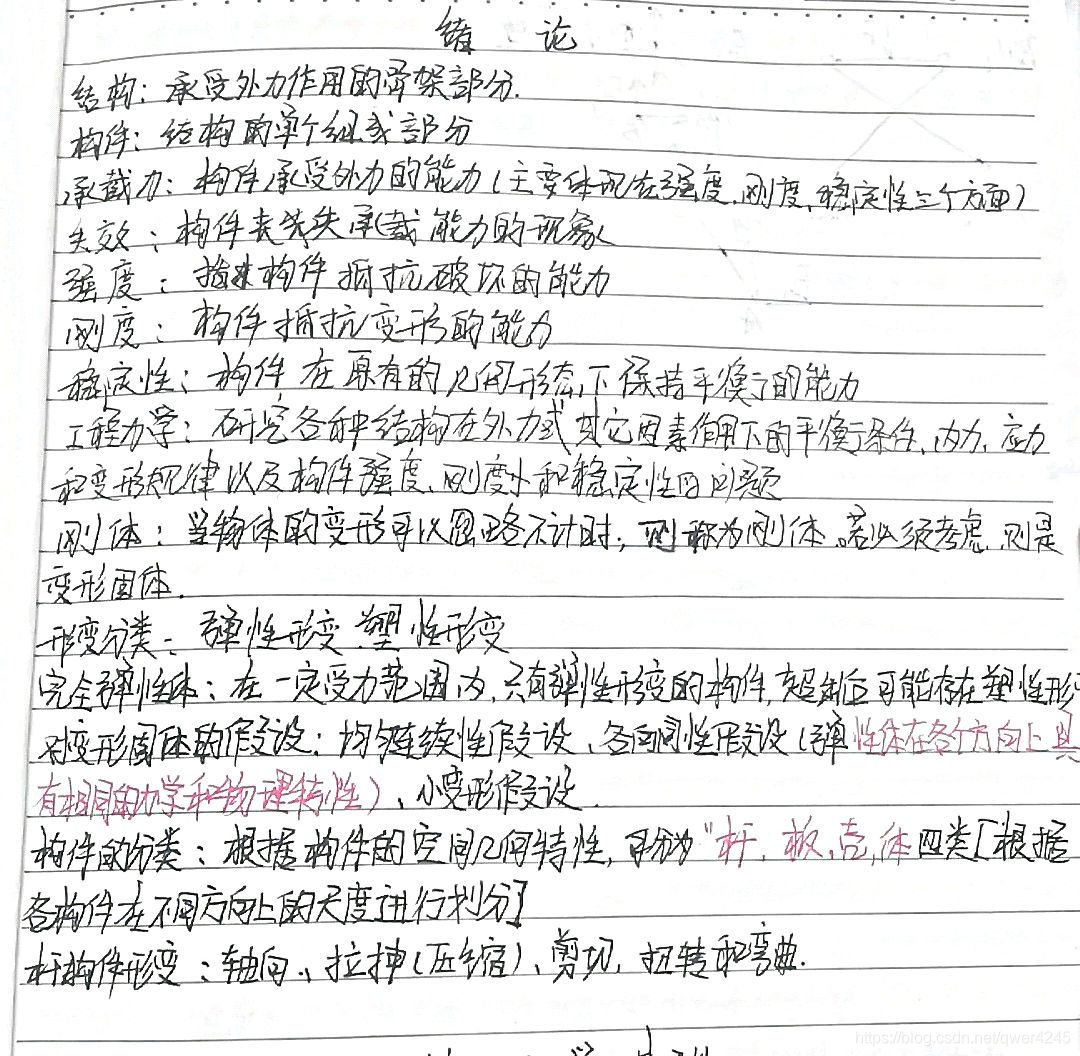 绪 论
结构：承受外力作用的骨架部分.
构件：结构的单个组成部分
承载力：构件承受外力的能力（主要体现在强度、刚度、稳定性三个方面）
失效：构件丧失承载能力的现象
强度：指构件抵抗破坏的能力
刚度：构件抵抗变形的能力
稳定性：构件在原有的几何形态下保持平衡的能力
工程力学：研究各种结构在外力或其它因素作用下的平衡条件、内力、应力
和变形规律以及构件强度、刚度和稳定性的问题
刚体：当物体的变形可以忽略不计时，则称为刚体。若必须考虑，则是
变形固体.
形变分类：弹性形变、塑性形变
完全弹性体：在一定受力范围内，只有弹性形变的构件，超出后可能存在塑性形
对变形固体的假设：均匀连续性假设、各向同性假设（弹性体在各个方向上具
有相同的力学和物理特性）、小变形假设.
构件的分类：根据构件的空间几何特性，可分为"杆、板、壳、体四类[根据
各构件在不同方向上的尺度进行划分]
杆构件形变：轴向、拉伸（压缩）、剪切、扭转和弯曲.
https://blog.csdn.net/qwer4245